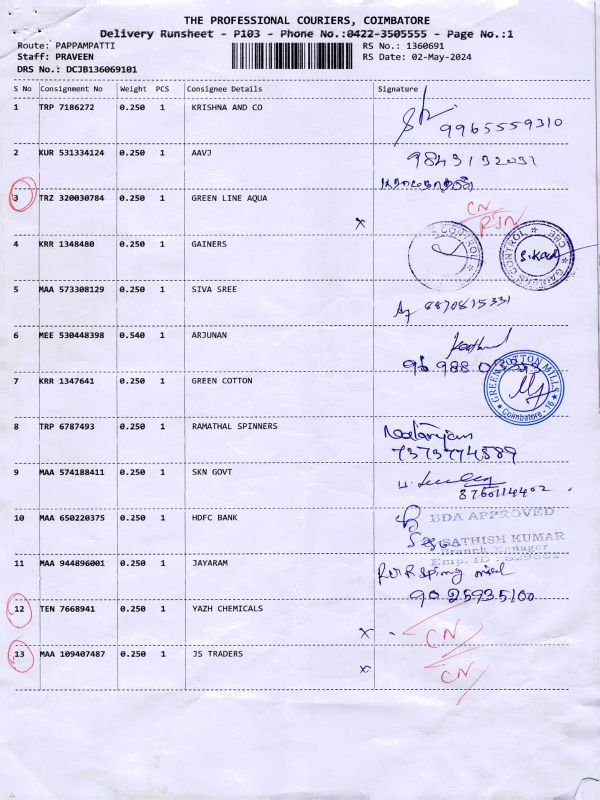 THE PROFESSIONAL COURIERS, COIMBATORE
Delivery Runsheet - P103 - Phone No.:0422-3505555 - Page No.:1
Route: PAPPAMPATTI RS No.: 1360691
Staff: PRAVEEN RS Date: 02-May-2024
DRS No.: DCJB136069101
S No Consignment No Weight PCS Consignee Details Signature
1 TRP 7186272 0.250 1 KRISHNA AND CO
9965559310
2 KUR 531334124 0.250 1 AAVJ 9843132031
3 TRZ 320030784 0.250 1 GREEN LINE AQUA CN
x
4 KRR 1348480 0.250 1 GAINERS
CONTROL GAINERS CONTROL
5 MAA 573308129 0.250 1 SIVA SREE
8870815331
6 MEE 530448398 0.540 1 ARJUNAN
7 KRR 1347641 0.250 1 GREEN COTTON GREEN COTTON MILLS Coimbatore - 16
8 TRP 6787493 0.250 1 RAMATHAL SPINNERS Natarajan
7373774889
9 MAA 574188411 0.250 1 SKN GOVT
8760114402
10 MAA 650220375 0.250 1 HDFC BANK BDA APPROVED
SATHISH KUMAR
Branch Manager
Emp. ID :
11 MAA 944896001 0.250 1 JAYARAM
90 25935100
12 TEN 7668941 0.250 1 YAZH CHEMICALS
x - CN
13 MAA 109407487 0.250 1 JS TRADERS
x CN